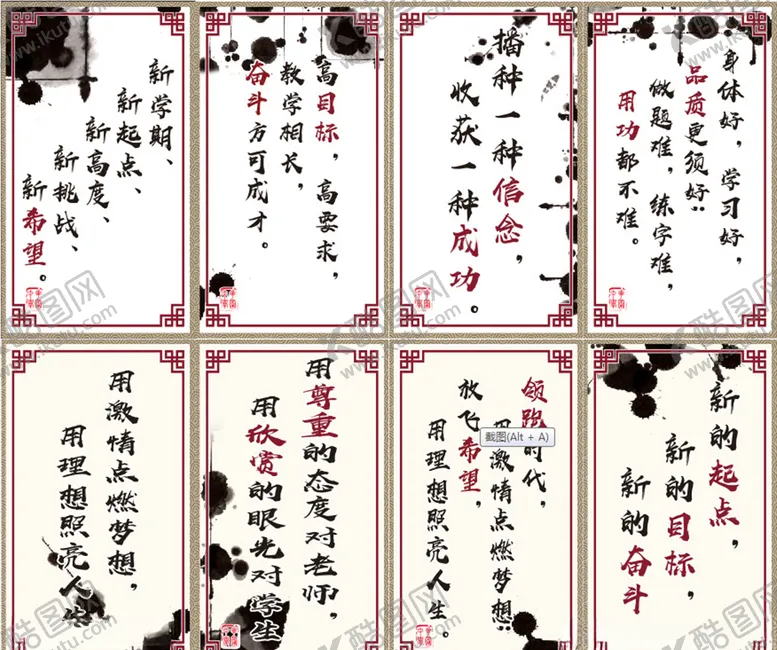 新学期、
新起点、
新高度、
新挑战、
新希望。
高目标，高要求，
教学相长，
奋斗方可成才。
播种一种信念，
收获一种成功。
身体好，学习好，
品质更须好；
做题难，练字难，
用功都不难。
用激情点燃梦想，
用理想照亮人生
用尊重的态度对老师，
用欣赏的眼光对学生
领跑时代，
用激情点燃梦想；
放飞希望，
用理想照亮人生。
截图(Alt + A)
新的起点，
新的目标，
新的奋斗
酷图网
www.ikutu.com